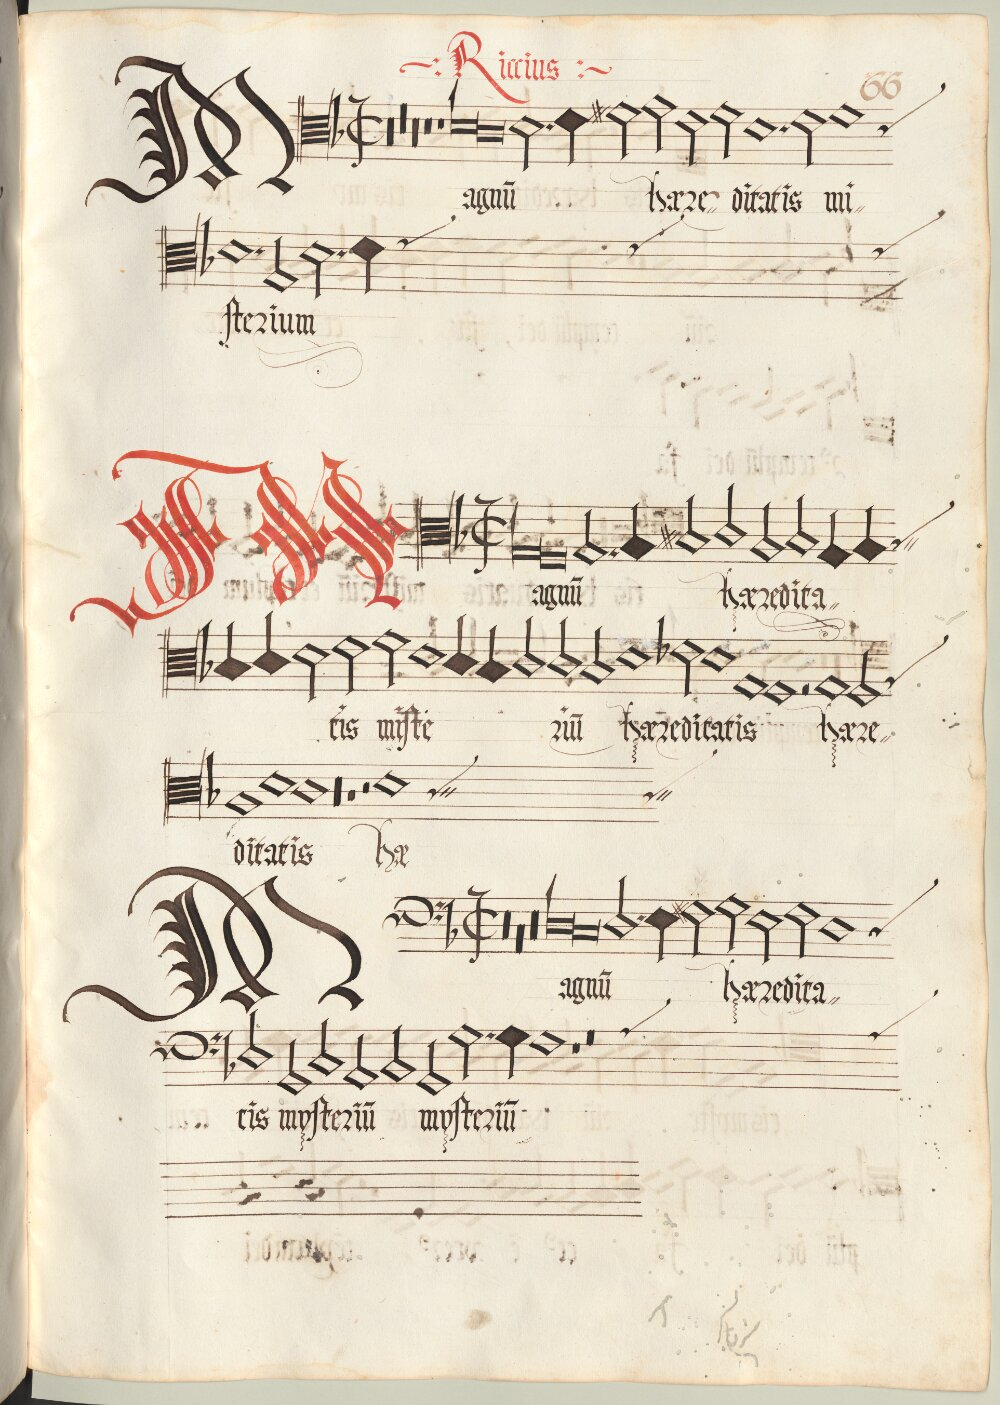 ~: Riccius :~
66
Magnū hære„ ditatis mi„
sterium
Magnū hæredita„
tis miste riū hæreditatis hære„
ditatis hæ
Magnū hæredita„
tis mysteriū mysteriū